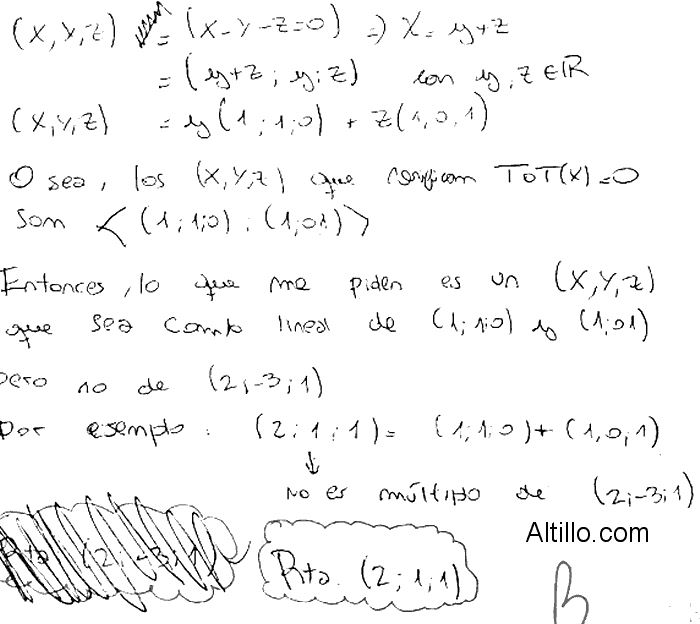 (X,Y,Z) = (X-Y-Z=0) => X= y+z
= (y+z ; y; z) con y, z ∈ ℝ
(X,Y,Z) = y(1;1;0) + z(1,0,1)
O sea, los (X,Y,Z) que verifican ToT(X)=0
Son < (1;1;0) ; (1;01) >
Entonces, lo que me piden es un (X,Y,Z)
que sea comb lineal de (1;1;0) y (1;01)
pero no de (2;-3;1)
Por ejemplo: (2;1;1) = (1;1;0)+(1,0,1)
↓
No es múltiplo de (2;-3;1)
Altillo.com
Rta (2;-3;1)
Rta. (2;1;1)
B